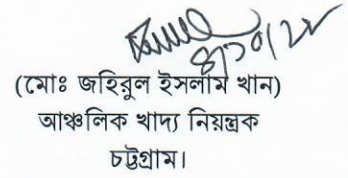 (মোঃ জহিরুল ইসলাম খান)
আঞ্চলিক খাদ্য নিয়ন্ত্রক
চট্টগ্রাম।